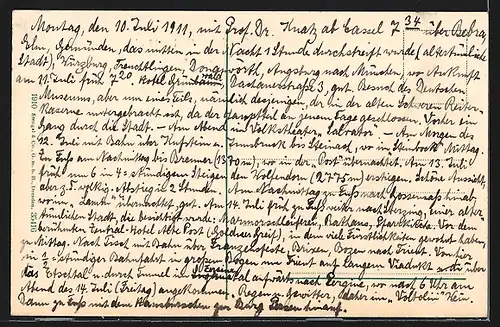 Montag, den 10. Juli 1911, mit Prof. Dr. Knatz ab Cassel 7 34 über Bebra
Elm, Gemünden, das mitten in der Nacht 1 Stunde durchstreift wurde (altertümliche
Stadt), Würzburg, Treuchtlingen, Donauwörth, Augsburg nach München, wo Ankunft
am 11. Juli früh 7 20. Hotel Grünwald, Dachauerstraße 3, gut. Besuch des Deutschen
Museums, aber nur eines Teils, nämlich desjenigen, der in der alten Schweren Reiter-
Kaserne untergebracht ist, da der Hauptteil an jenem Tage geschlossen. Vorher ein
Gang durch die Stadt. – Am Abend im Volkstheater Salvator. – Am Morgen des
12. Juli mit Bahn über Kufstein u. Innsbruck bis Steinach, wo in Steinbock Mittag.
Zu Fuß am Nachmittag bis Brenner (1370 m), wo in der Post übernachtet. Am 13. Juli
früh um 6 in 4 stündigem Steigen den Wolfendorn (2775 m) erstiegen. Schöne Aussicht,
aber z. T. wolkig. Abstieg in 2 Stunden. Am Nachmittag zu Fuß nach Gossensaß hinab,
wo im "Lamm" übernachtet, gut. Am 14. Juli früh zu Fuß weiter nach Sterzing, einer alter-
tümlichen Stadt, die besichtigt wurde: Marmorschleiferei, Rathaus, Pfarrkirche. Vor dem
berühmten Central-Hotel Alte Post (Goldner Greif), in dem viel Fürstlichkeiten gewohnt haben,
zu Mittag. Nach Tisch mit Bahn über Franzensfeste, Brixen, Bozen nach Trient. Von hier
in 1/2 stündiger Bahnfahrt in großem Bogen um Trient auf langem Viadukt über
das Etschtal u. durch Tunnel im aufwärts nach Pergine, wo nach 6 Uhr am
Abend des 14. Juli (Freitag) angekommen. Regen u. Gewitter, daher im "Voltolini" Kein.
Dann zu Fuß mit dem Hausburschen zur Burg Persen hinauf.
1910 Stengel & Co., G. m. b. H., Dresden.